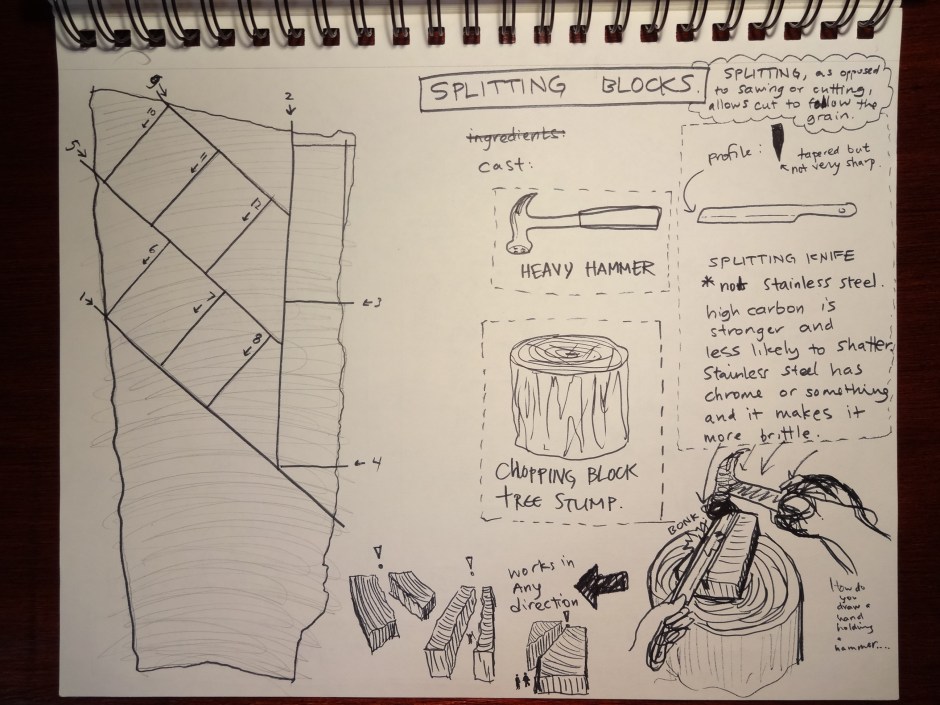 SPLITTING BLOCKS.
SPLITTING, as opposed
to sawing or cutting,
allows cut to follow the
grain.
ingredients:
cast:
HEAVY HAMMER
CHOPPING BLOCK
TREE STUMP.
profile:
tapered but
not very sharp.
SPLITTING KNIFE
* not stainless steel.
high carbon is
stronger and
less likely to shatter.
Stainless steel has
chrome or something
and it makes it
more brittle.
9
2
10
5
11
12
6
1
7
3
8
4
BONK
works in
Any
direction
!
!
!
How do
you
draw a
hand
holding
a
hammer....